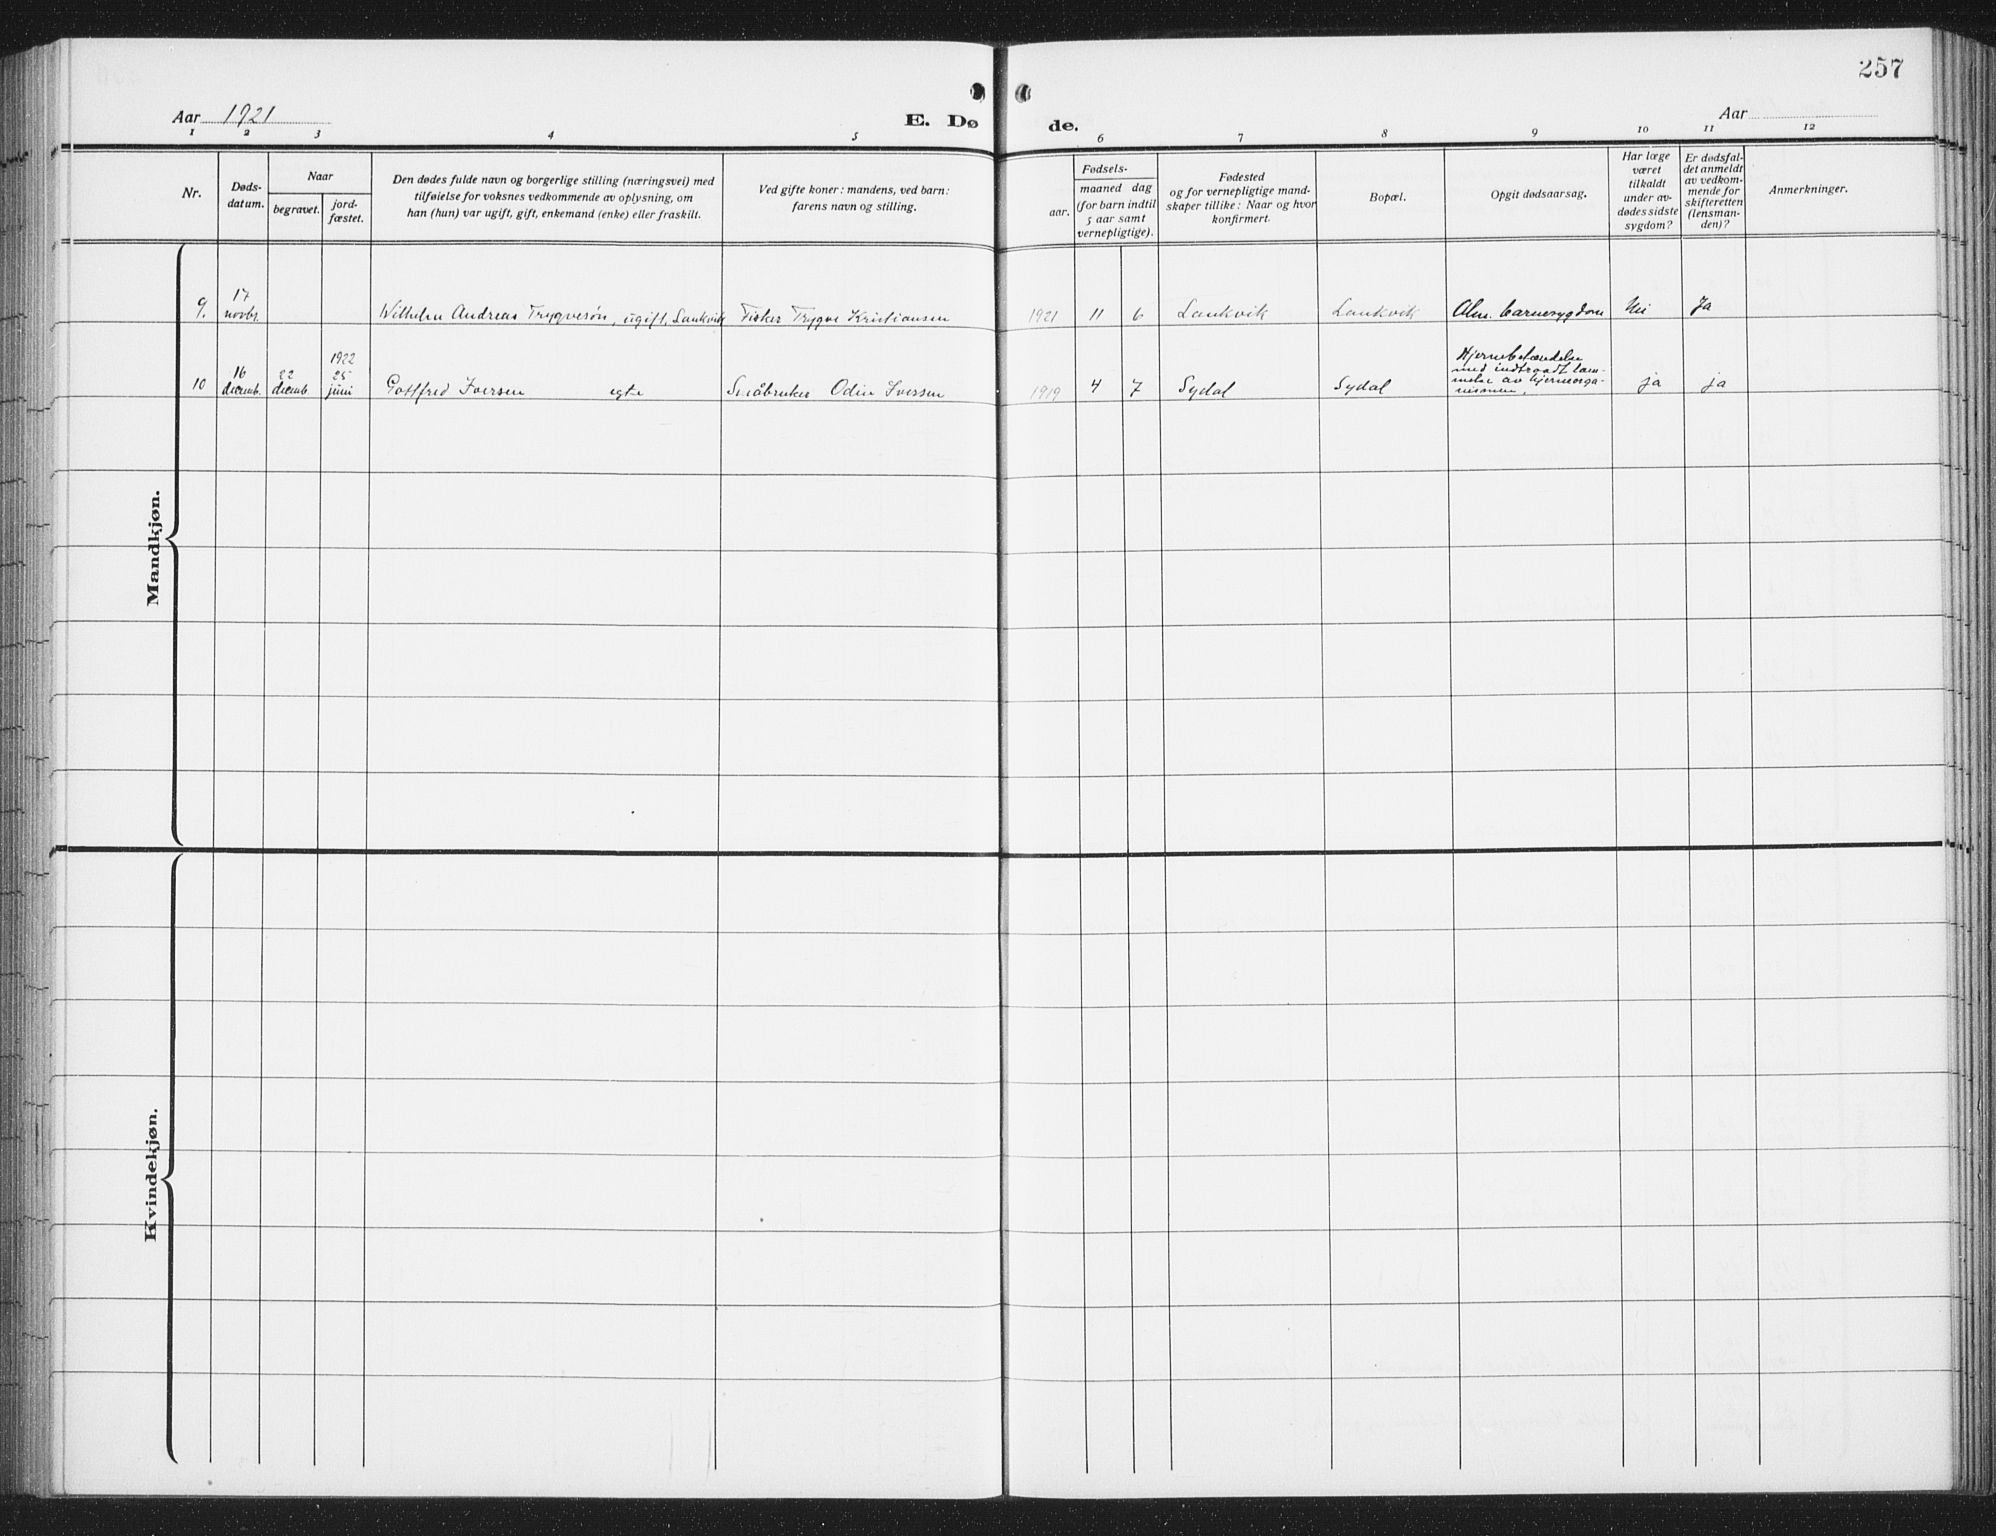 257
Aar 1921
E. Dø
de.
Aar
1 2 3 4 5 6 7 8 9 10 11 12
Nr.
Døds-
datum.
Naar
begravet.
jord-
fæstet.
Den dødes fulde navn og borgerlige stilling (næringsvei) med
tilføielse for voksnes vedkommende av oplysning, om
han (hun) var ugift, gift, enkemand (enke) eller fraskilt.
Ved gifte koner: mandens, ved barn:
farens navn og stilling.
Fødsels-
aar.
maaned dag
(for barn indtil
5 aar samt
vernepligtige).
Fødested
og for vernepligtige mand-
skaper tillike: Naar og hvor
konfirmert.
Bopæl.
Opgit dødsaarsag.
Har læge
været
tilkaldt
under av-
dødes sidste
sygdom?
Er dødsfal-
det anmeldt
av vedkom-
mende for
skifteretten
(lensman-
den)?
Anmerkninger.
Mandkjøn.
9. 17 novbr. Wilhelm Andreas Trygvesøn, ugift, Laukvik Fisker Trygve Kristiansen 1921 11 6 Laukvik Laukvik Alm. barnesygdom Nei Ja
10 16 decemb. 22 decemb. 1922 25 juni Gottfred Iversen egte Småbruker Odin Iversen 1919 4 7 Sydal Sydal Hjernebetændelse
med indtraadt lam-
melse av hjerneorga-
nismen. ja ja
Kvindekjøn.